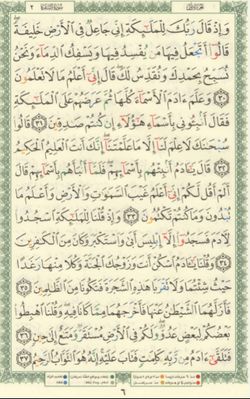 وَإِذْ قَالَ رَبُّكَ لِلْمَلَـٰٓئِكَةِ إِنِّى جَاعِلٌ فِى ٱلْأَرْضِ خَلِيفَةً
قَالُوٓا۟ أَتَجْعَلُ فِيهَا مَن يُفْسِدُ فِيهَا وَيَسْفِكُ ٱلدِّمَآءَ وَنَحْنُ
نُسَبِّحُ بِحَمْدِكَ وَنُقَدِّسُ لَكَ قَالَ إِنِّىٓ أَعْلَمُ مَا لَا تَعْلَمُونَ
٣٠ وَعَلَّمَ ءَادَمَ ٱلْأَسْمَآءَ كُلَّهَا ثُمَّ عَرَضَهُمْ عَلَى ٱلْمَلَـٰٓئِكَةِ
فَقَالَ أَنۢبِـُٔونِى بِأَسْمَآءِ هَـٰٓؤُلَآءِ إِن كُنتُمْ صَـٰدِقِينَ ٣١ قَالُوا۟
سُبْحَـٰنَكَ لَا عِلْمَ لَنَآ إِلَّا مَا عَلَّمْتَنَآ إِنَّكَ أَنتَ ٱلْعَلِيمُ ٱلْحَكِيمُ
٣٢ قَالَ يَـٰٓـَٔادَمُ أَنۢبِئْهُم بِأَسْمَآئِهِمْ فَلَمَّآ أَنۢبَأَهُم بِأَسْمَآئِهِمْ قَالَ
أَلَمْ أَقُل لَّكُمْ إِنِّىٓ أَعْلَمُ غَيْبَ ٱلسَّمَـٰوَٰتِ وَٱلْأَرْضِ وَأَعْلَمُ مَا
تُبْدُونَ وَمَا كُنتُمْ تَكْتُمُونَ ٣٣ وَإِذْ قُلْنَا لِلْمَلَـٰٓئِكَةِ ٱسْجُدُوا۟
لِـَٔادَمَ فَسَجَدُوٓا۟ إِلَّآ إِبْلِيسَ أَبَىٰ وَٱسْتَكْبَرَ وَكَانَ مِنَ ٱلْكَـٰفِرِينَ
٣٤ وَقُلْنَا يَـٰٓـَٔادَمُ ٱسْكُنْ أَنتَ وَزَوْجُكَ ٱلْجَنَّةَ وَكُلَا مِنْهَا رَغَدًا
حَيْثُ شِئْتُمَا وَلَا تَقْرَبَا هَـٰذِهِ ٱلشَّجَرَةَ فَتَكُونَا مِنَ ٱلظَّـٰلِمِينَ ٣٥
فَأَزَلَّهُمَا ٱلشَّيْطَـٰنُ عَنْهَا فَأَخْرَجَهُمَا مِمَّا كَانَا فِيهِ وَقُلْنَا ٱهْبِطُوا۟
بَعْضُكُمْ لِبَعْضٍ عَدُوٌّ وَلَكُمْ فِى ٱلْأَرْضِ مُسْتَقَرٌّ وَمَتَـٰعٌ إِلَىٰ حِينٍ ٣٦
فَتَلَقَّىٰٓ ءَادَمُ مِن رَّبِّهِۦ كَلِمَـٰتٍ فَتَابَ عَلَيْهِ إِنَّهُۥ هُوَ ٱلتَّوَّابُ ٱلرَّحِيمُ ٣٧
٦